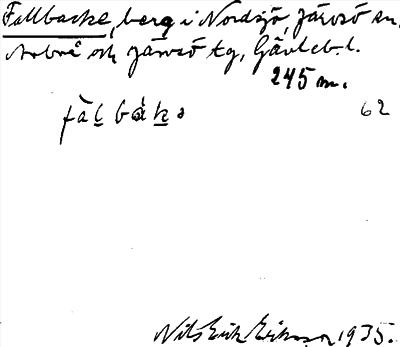 Fallbacke, berg i Nordsjö, Järvsö sn,
Arbrå och Järvsö tg, Gävleb. l.
245 m.
fàl̲ bàk̲ə 62
Nils Erik Eriksson 1935.